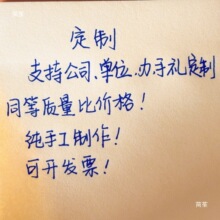 定制
支持公司、单位、办手礼定制
同等质量比价格！
纯手工制作！
可开发票！